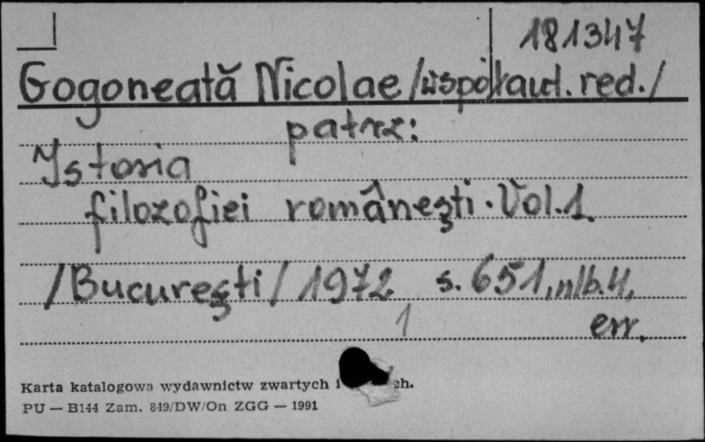 181347
Gogoneată Nicolae /współaut. red./
patrz:
Istoria
filozofiei româneşti. Vol.1.
/Bucureşti/ 1972 s. 651, nlb. 4,
1 err.
Karta katalogowa wydawnictw zwartych i
PU — B144 Zam. 849/DW/On ZGG — 1991